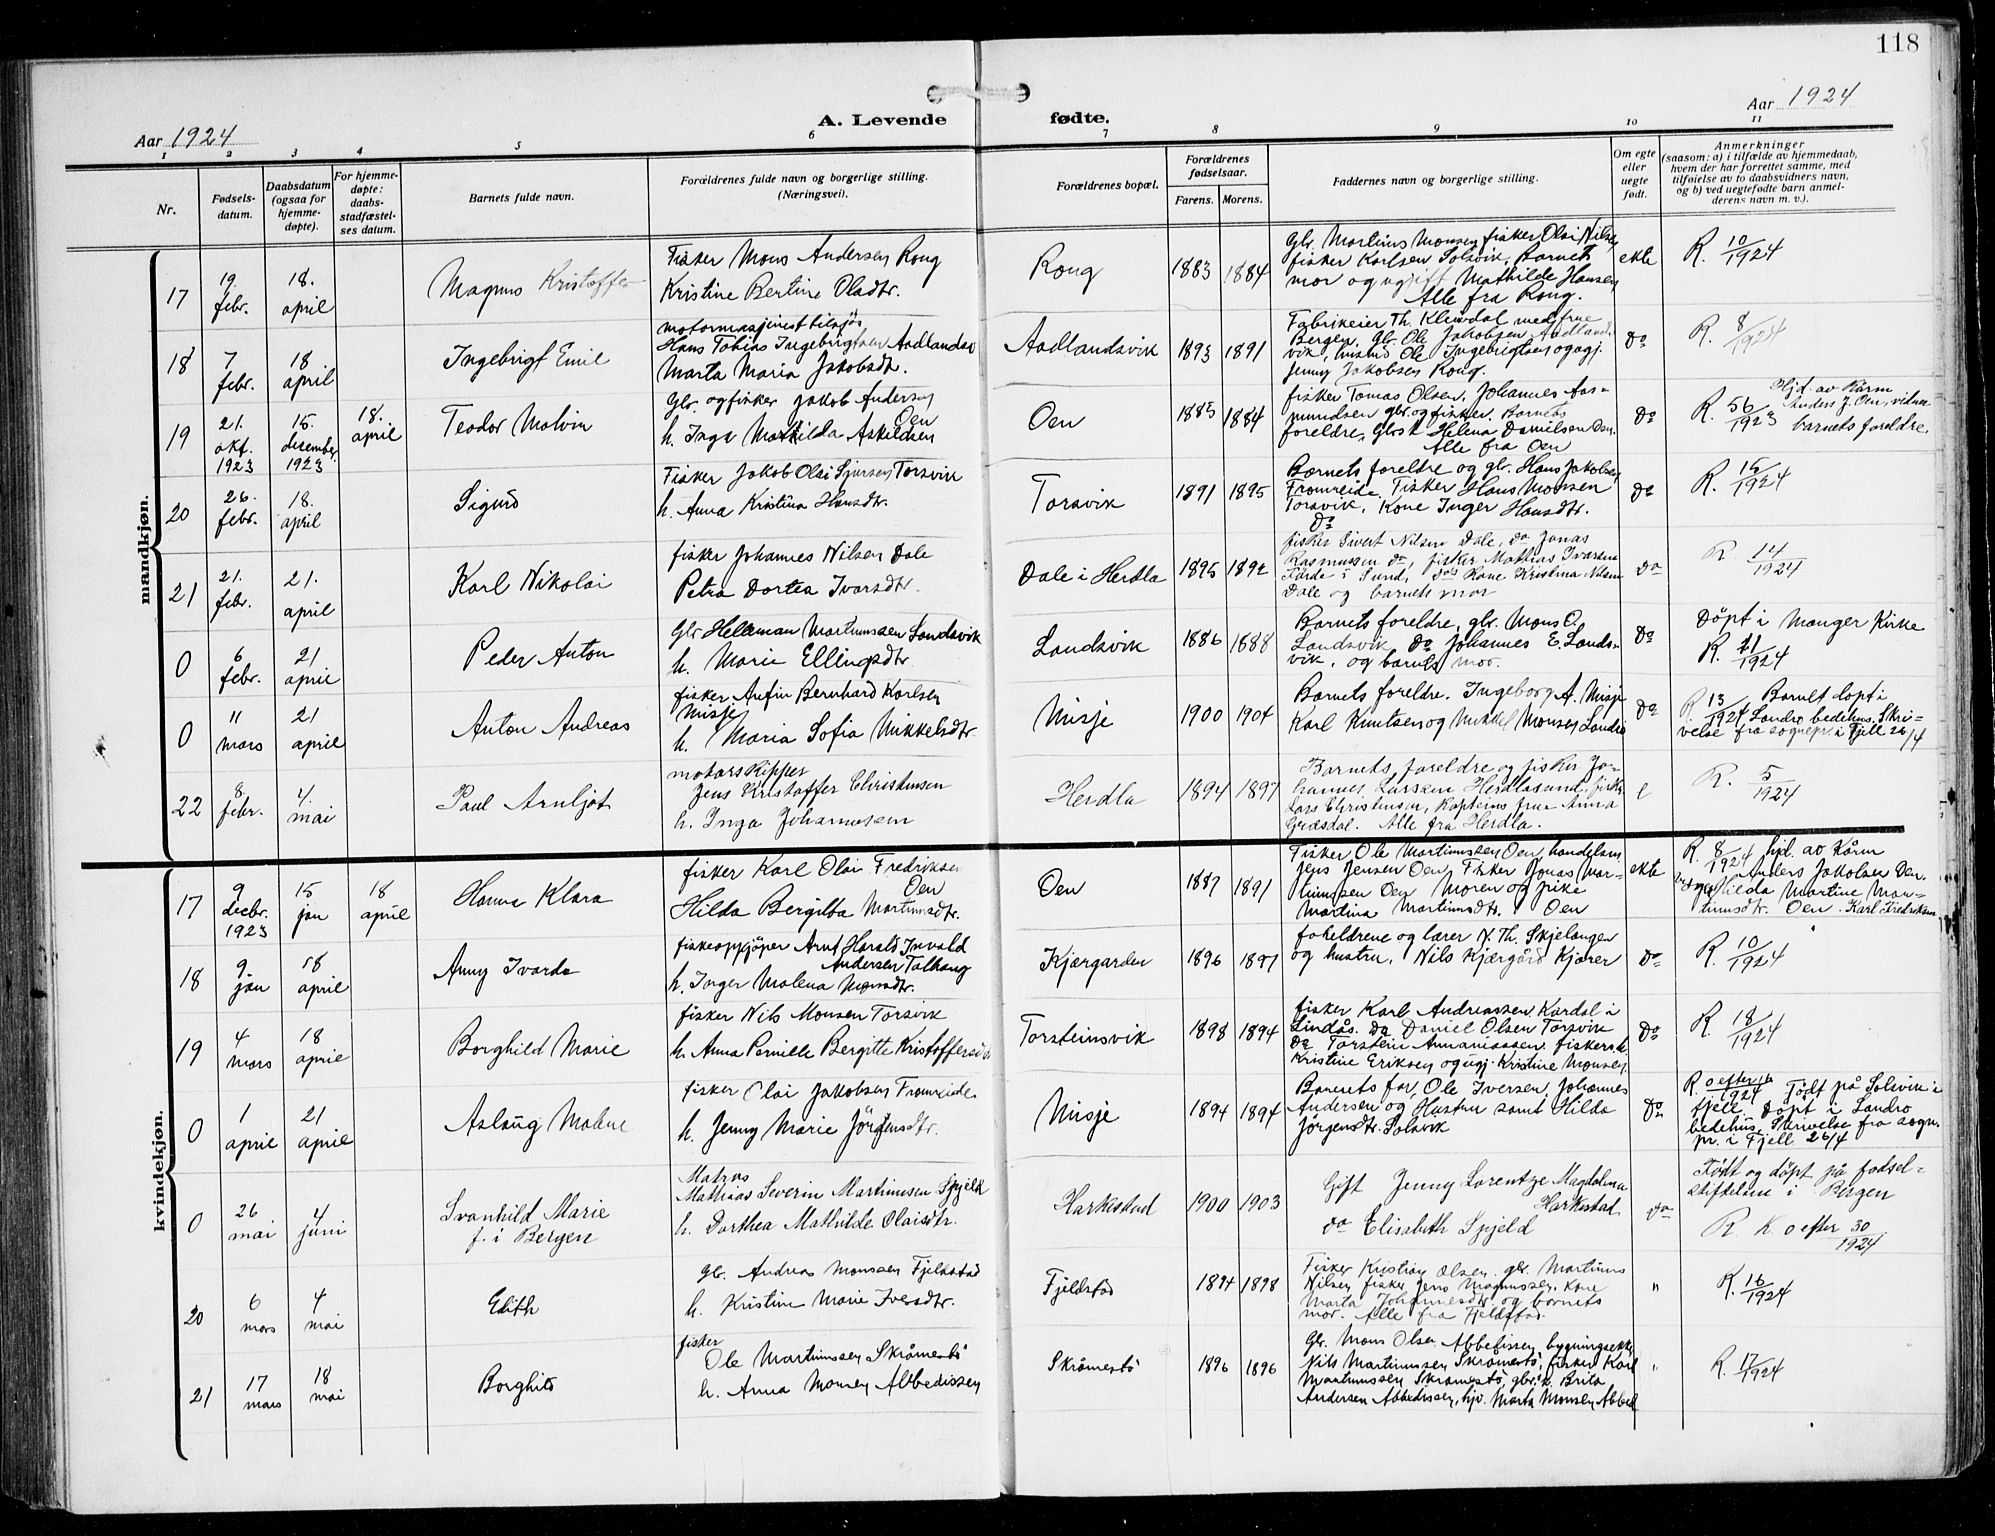 118
Aar 1924
A. Levende fødte.
Aar 1924
1 2 3 4 5 6 7 8 9 10 11
Nr.
Fødsels-
datum.
Daabsdatum
(ogsaa for
hjemme-
døpte).
For hjemme-
døpte:
daabs-
stadfæstel-
ses datum.
Barnets fulde navn.
Forældrenes fulde navn og borgerlige stilling.
(Næringsvei).
Forældrenes bopæl.
Forældrenes
fødselsaar.
Farens. Morens.
Faddernes navn og borgerlige stilling.
Om egte
eller
uegte
født.
Anmerkninger
(saasom: a) i tilfælde av hjemmedaab,
hvem der har forrettet samme, med
tilføielse av to daabsvidners navn,
og b) ved uegtefødte barn anmel-
derens navn m. v.).
mandkjøn.
17
19.
febr.
18.
april
Magnus Kristoffer
Fisker Mons Andersen Rong
Kristine Bertine Oladtr.
Rong
1883 1884
Glr. Martinus Monsen fisker Olai Nilsen
fisker Karlsen Solsvik, Barnets
mor og ugift Mathilde Hansen
Alle fra Rong.
ekte
R. 10/1924
18
7
febr.
18
april
Ingebrigt Emil
motormaskinist tilsjøs
Hans Tobias Ingebrigtsen Aadlandsv
Marta Maria Jakobsdtr.
Aadlandsvik
1893 1891
Fabrikeier Th. Kleivdal med frue
Bergen. Glr. Ole Jakobsen Aadlands-
vik, Ole Ingebrigtsen og ugj.
Jenny Jakobsen Rong.
do
R. 8/1924
19
21.
okt.
1923
15.
desember
1923
18.
april
Teodor Malvin
Glr. og fisker Jakob Andersen
Oen
h. Inga Mathilda Askildsen
Oen
1885 1884
fisker Tomas Olsen, Johannes Aas-
mundsen glr. og fisker. Barnets
foreldre, Helena Danielsen Oen.
Alle fra Oen
do
R. 56/1923
Hjd. av Kårm
Anders J. Oen, vidner
barnets foreldre.
20
26.
febr.
18.
april
Sigurd
Fisker Jakob Olai Sjursen Torsvik
h. Anna Kristina Hansdtr.
Torsvik
1891 1895
Barnets foreldre og glr. Hans Jakobsen
Fromreide. Fisker Hans Monsen
Torsvik, Kone Inger Hansdtr.
do
do
R. 15/1924
21
21.
febr.
21.
april
Karl Nikolai
fisker Johannes Nilsen Dale
Petra Dortea Ivarsdtr.
Dale i Herdla
1895 1892
fisker Sivert Nilsen Dale, do Jonas
Rasmussen do, fisker Mathias Ivarsen
Førde i Sund, do's Kone Kristina Nilsen
Dale og barnets mor
do
R. 14/1924
0
6
febr.
21
april
Peder Anton
Glr Helleman Martinussen Landsvik
h. Marie Ellingsdtr.
Landsvik
1886 1888
Barnets foreldre, glr. Mons O.
Landsvik do Johannes E. Lands-
vik, og barnets mor.
do
Döpt i Manger Kirke
R. 21/1924
0
11
mars
21
april
Anton Andreas
fisker Anfin Bernhard Karlsen
Misje
h. Maria Sofia Mikkelsdtr.
Misje
1900 1904
Barnets foreldre. Ingeborg A. Misje
Karl Knutsen og Mikkel Monsen, Landro
do
R. 13/1924 Barnet döpt i
Landro bedehus. Skri-
velse fra sognepr. i Fjell 26/4
22
8.
febr.
4.
mai
Paul Arnljot
motorskipper
Jens Kristoffer Christensen
h. Inga Johannesen
Herdla
1894 1897
Barnets foreldre og fisker Jo-
hannes Larsken Herdlasund, fisker
Lars Christensen, Kapteins frue Anna
Græsdal. Alle fra Herdla.
e
R. 5/1924
kvindekjøn.
17
9
decbr.
1923
15
jan
18
april
Hanna Klara
fisker Karl Olai Fredriksen
Oen
Hilda Bergitta Martinusdtr.
Oen
1887 1891
Fisker Ole Martinussen Oen, handelsm
Jens Jensen Oen Fisker Jonas Mar-
tinussen Oen Moren og pike
Martina Martinusdtr. Oen
ekte
R. 8/1924 hjd. av Kårm
Anders Jakobsen Oen.
Hilda Martine Mar-
tinusdtr. Oen. Karl Fredriksen
18
9
jan
18
april
Anny Ivarda
fiskeoppkjöper Arnt Harald Invald
Andersen Tolhaug
h. Inger Malena Monsdtr.
Kjærgarden
1896 1897
foreldrene og lærer N. Th. Skjelanger
og hustru, Nils Kjærgård Kjører
do
R. 10/1924
19
4
mars
18
april
Borghild Marie
fisker Nils Monsen Torsvik
h. Anna Pernille Bergitte Kristoffersdtr
Torsteinsvik
1898 1894
fisker Karl Andreassen Kårdal i
Lindås. do Daniel Olsen Torsvik
do Torstein Ananiassen. fiskers k.
Kristine Eriksen og ugj. Kristine Monsen
do
R. 18/1924
0
1
april
21
april
Aslaug Malene
fisker Olai Jakobsen Fromreide
h. Jenny Marie Jörgensdtr.
Misje
1894 1894
Barnets far, Ole Iversen, Johannes
Andersen og Hustru samt Hilda
Jörgensdtr. Solsvik
do
R. 0 efter 16/1924 Födt på Solsvik i
fjell. Döpt i Landro
bedehus. Skrivelse fra sogn.
pr. i Fjell 26/4
0
26
mai
4
juni
Svanhild Marie
f. i Bergen
Matros
Mathias Severin Martinusen Spjeld
h. Dorthea Mathilde Olaisdtr.
Harkestad
1900 1903
Gift Jenny Lorentze Magdalena
Harkestad
do Elisabeth Spjeld
do
Födt og döpt på födsel-
stiftelsen i Bergen
R. K. 0 efter 30/1924
20
6
mars
4
mai
Edith
glr. Andreas Monssen Fjeldstad
h. Kristine Marie Iversdtr.
Fjeldstad
1894 1898
Fisker Kristian Olsen. glr. Martinus
Nilsen, fisker Jens Magnussen, kone
Marta Johannesdtr. og barnets
mor. Alle fra Fjeldstad.
"
R. 16/1924
21
17
mars
18
mai
Borghild
fisker
Ole Martinussen Skråmestö
h. Anna Monsen Abbedissen
Skråmestö
1896 1896
Glr. Mons Olsen Abbedissen, bygningsekt
Nils Martinussen Skråmestö, fisker Karl
Martinussen Skråmestö, gbr. k. Brita
Andersen Abbedissen, hjv. Marta Monsen Abbed
"
R. 17/1924